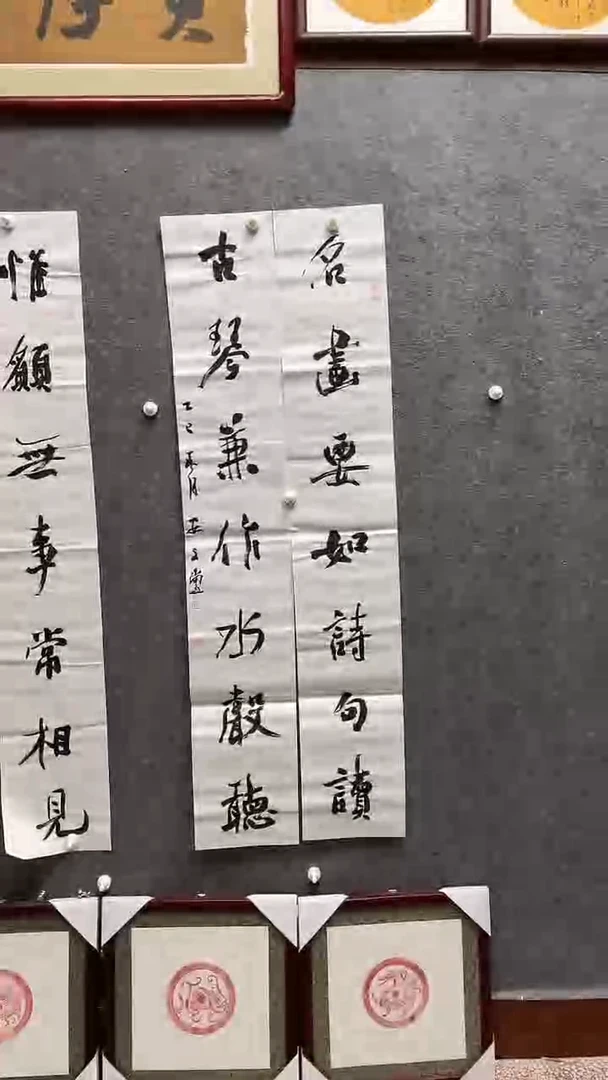 名畫要如詩句讀
古琴兼作水聲聽
乙巳
惟願無事常相見